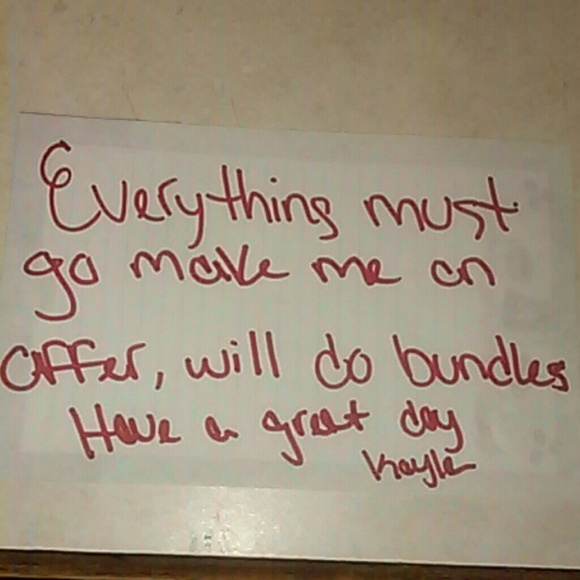 Everything must
go make me an
offer, will do bundles
Have a great day
Kayla